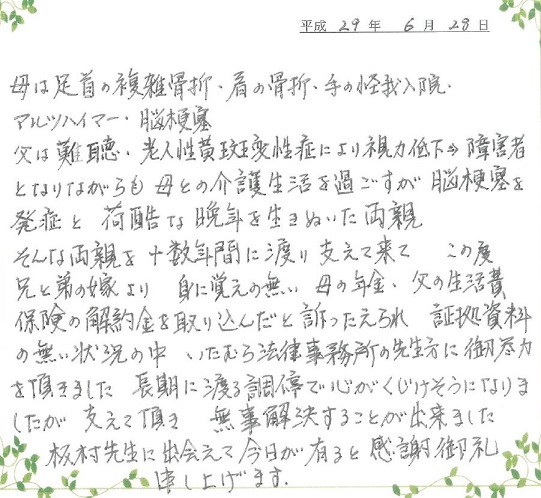 平成 29 年 6 月 28 日
母は足首の複雑骨折・肩の骨折・手の怪我入院・
アルツハイマー・脳梗塞
父は難聴・老人性黄斑変性症により視力低下⇒障害者
となりながらも 母との介護生活を過ごすが 脳梗塞を
発症と 苛酷な晩年を生きぬいた両親
そんな両親を十数年間に渡り支えて来て この度
兄と弟の嫁より 身に覚えの無い 母の年金・父の生活費
保険の解約金を取り込んだと訴ったえられ 証拠資料
の無い状況の中 いたむら法律事務所の先生方に御尽力
を頂きました 長期に渡る調停で心がくじけそうになりま
したが 支えて頂き 無事解決することが出来ました
板村先生に出会えて今日が有ると感謝御礼
申し上げます.